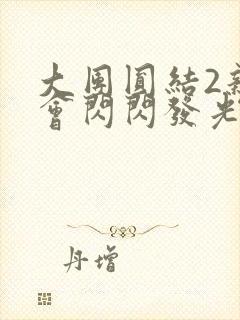 大團圓結2新
會閃閃發光
丹增